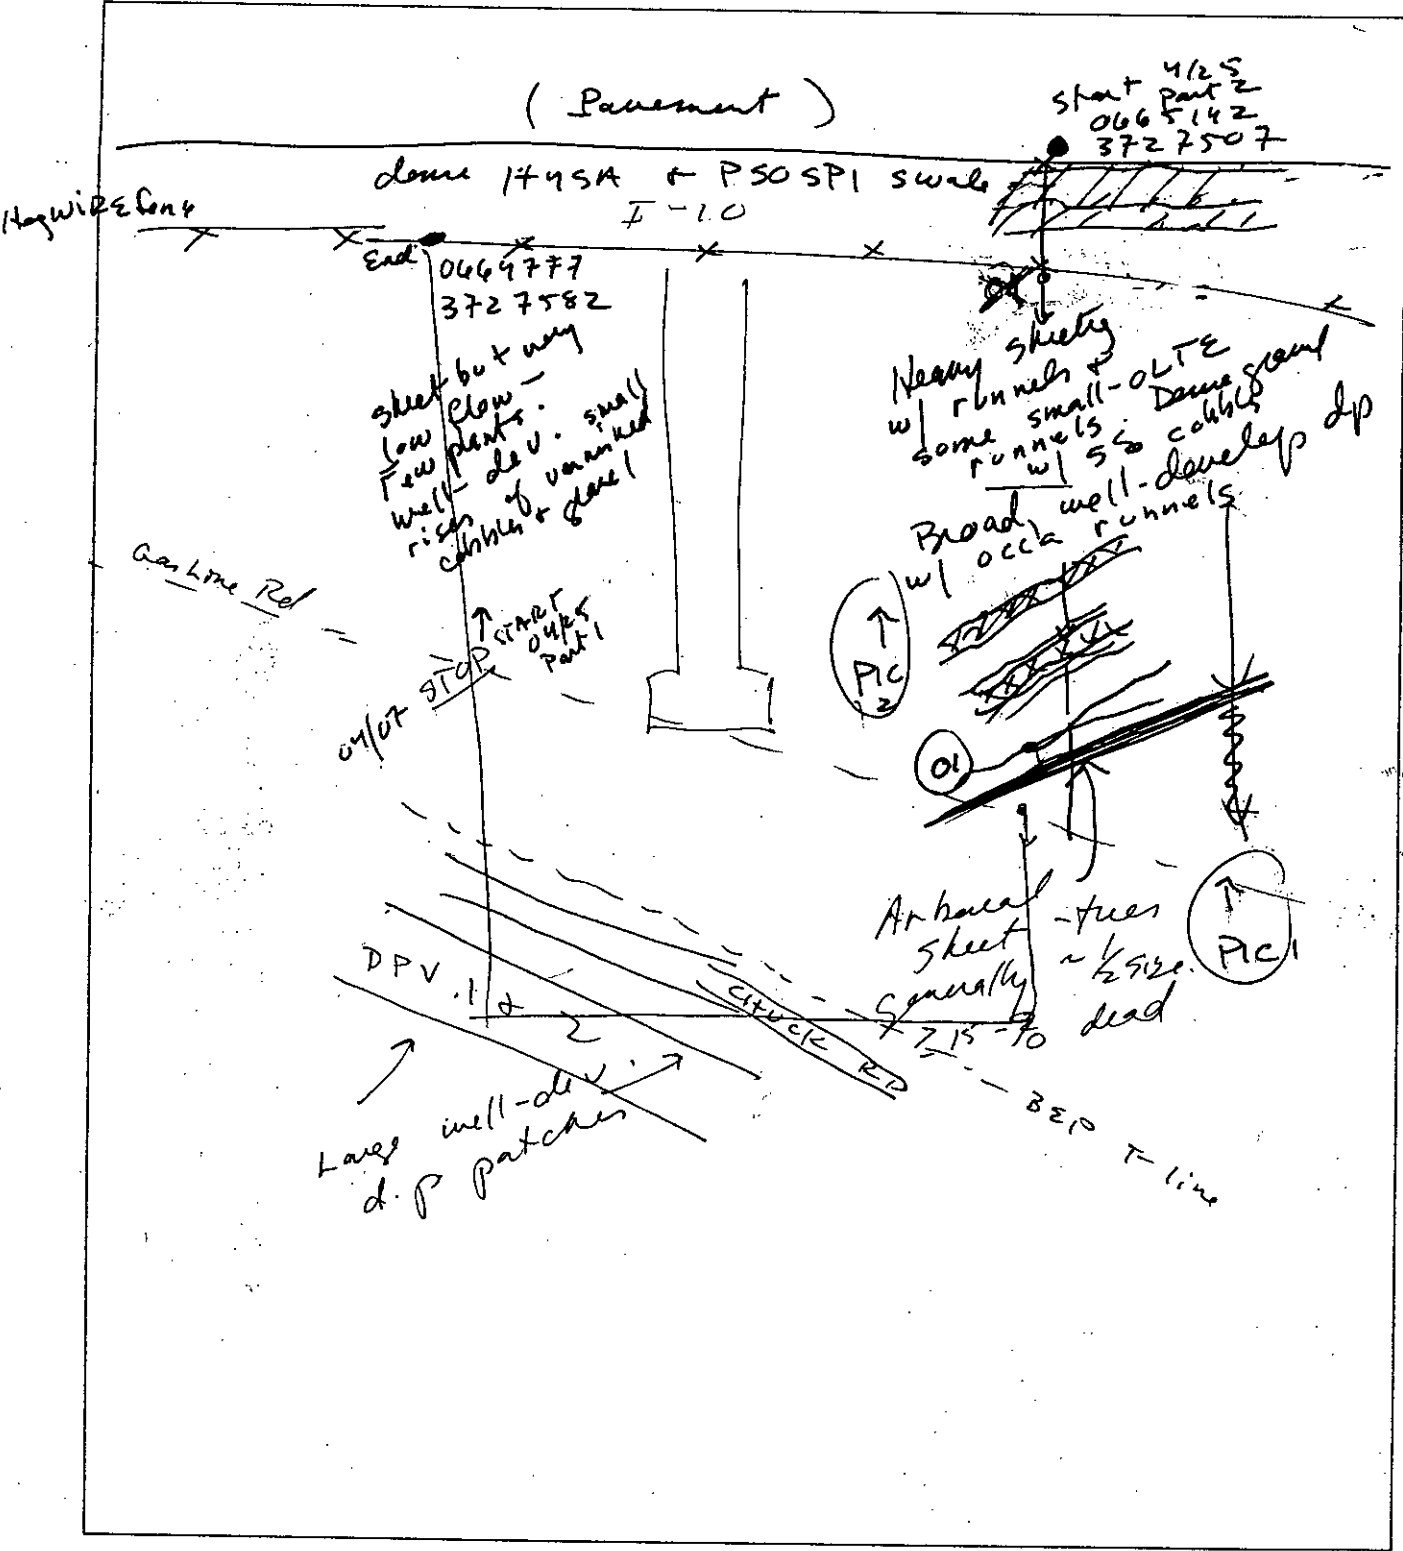 ( Pavement )
start 4/25
Part 2
0665142
3727507
dense HYSA & PSOSPI swale
I-10
Hogwire fence
End
0664777
3727582
sheet but very
low flow -
Few plants.
well-dev. small
rises of varnished
cobbles & gravel
Heavy sheeting
w/ runnels &
some small-OLTE
runnels. Dense gravel
w/ SS cobbles
Broad, well-develop dp
w/ occa runnels
Gas Line Rd
↑ START
04/25
Part 1
04/07 STOP
↑
PIC
2
01
↑
PIC 1
Arboreal
sheet - trees
generally ~ 1/2 size.
> 15-70 dead
DPV.1 & 2
CHUCK RD
Large well-dev.
d.p patches
BEP T-line